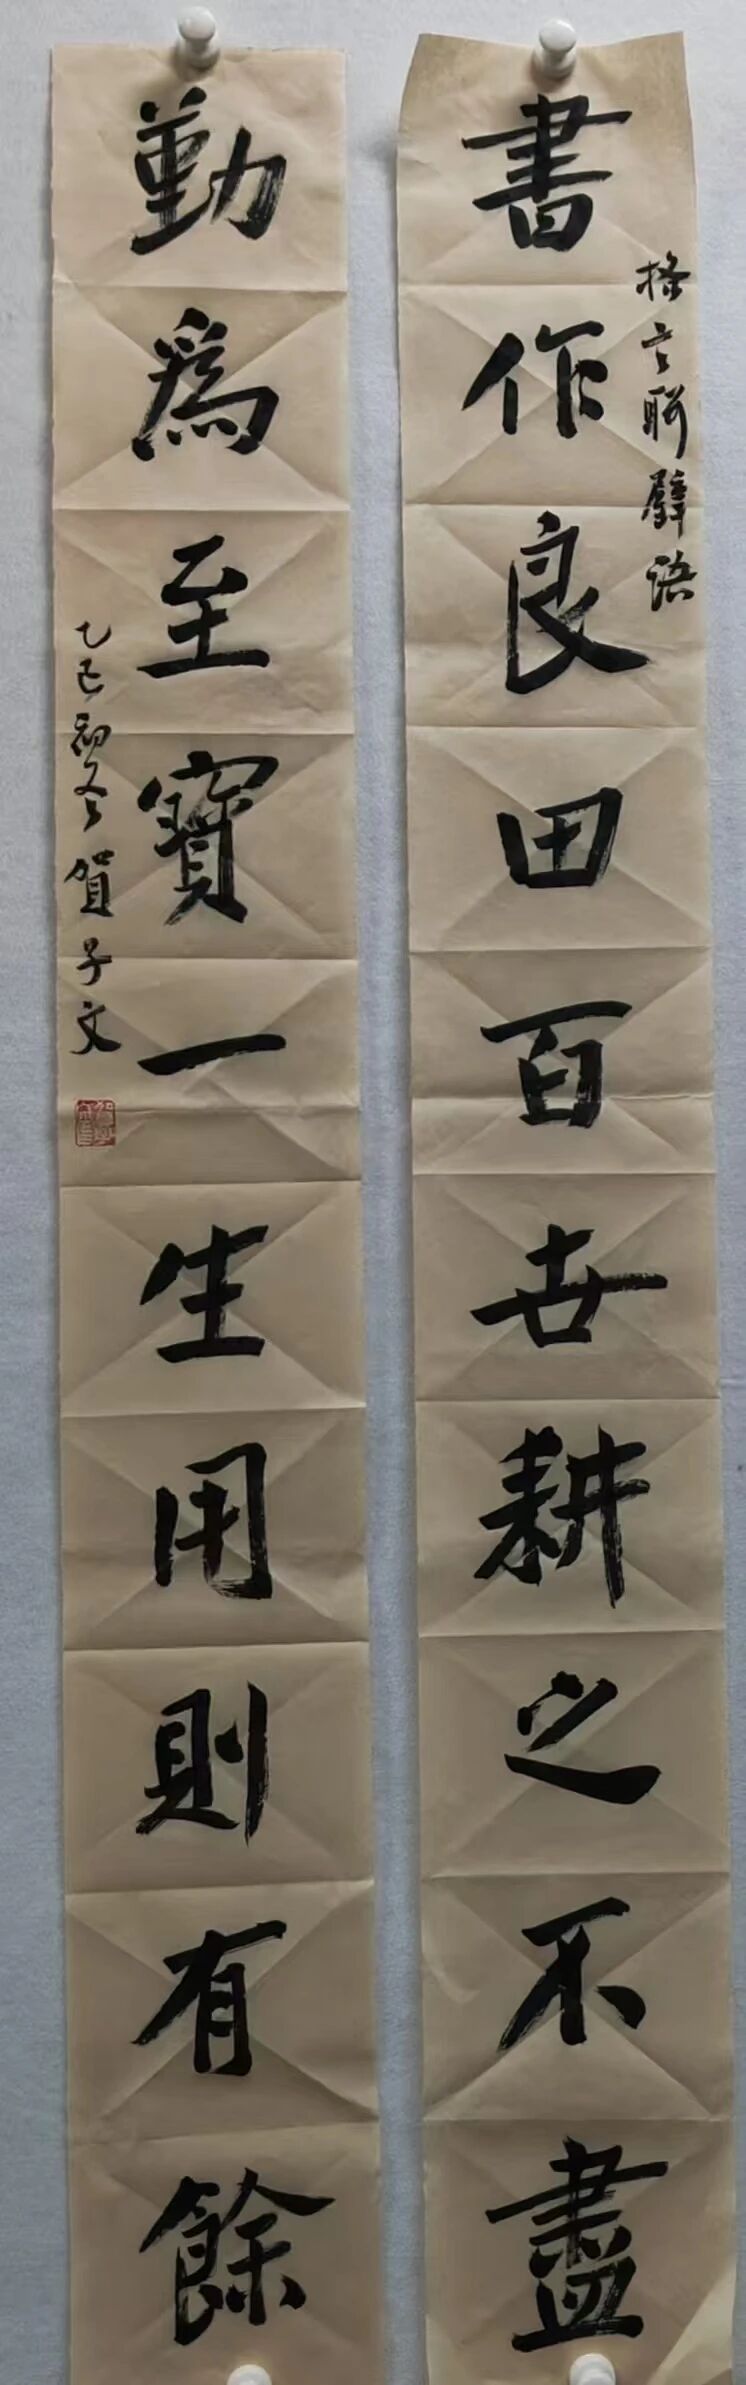 書作良田百世耕之不盡
格言聯璧語
勤爲至寶一生用則有餘
乙巳初冬賀子文